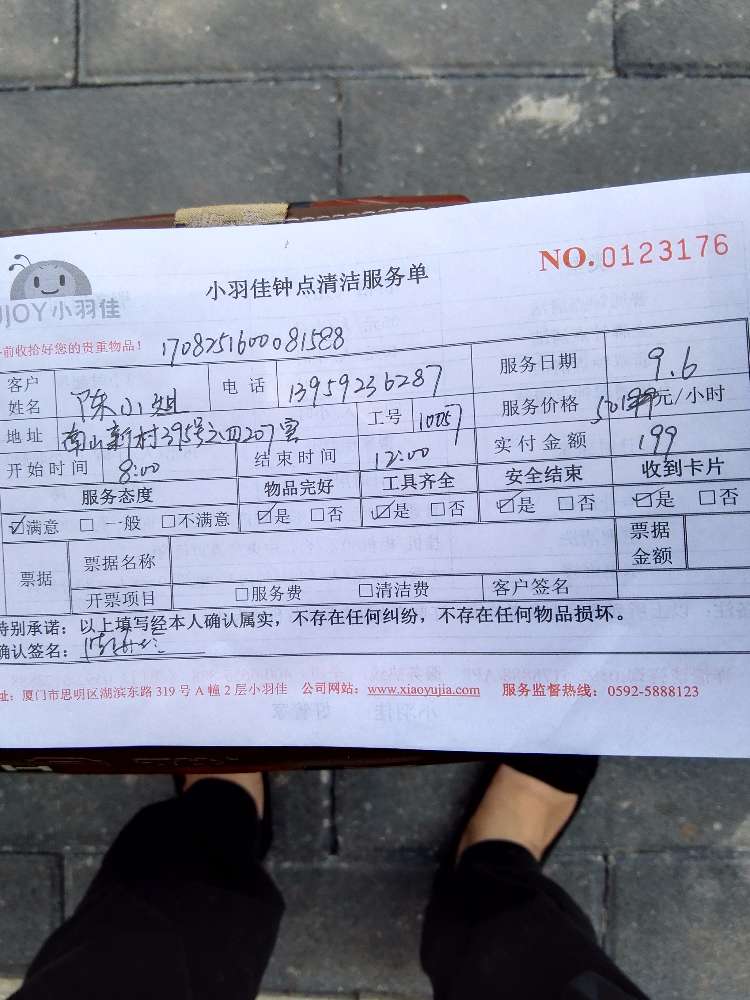 小羽佳钟点清洁服务单
NO.0123176
JOY小羽佳
前收拾好您的贵重物品！ 1708251600081588
客户姓名 陈小姐 电话 13959236287 服务日期 9.6
地址 南山新村395号之四207室 工号 10057 服务价格 元/小时
开始时间 8:00 结束时间 12:00 实付金额 199
服务态度 物品完好 工具齐全 安全结束 收到卡片
☑满意 □一般 □不满意 ☑是 □否 ☑是 □否 ☑是 □否 ☑是 □否
票据 票据名称 票据金额
开票项目 □服务费 □清洁费 客户签名
特别承诺：以上填写经本人确认属实，不存在任何纠纷，不存在任何物品损坏。
确认签名：
址：厦门市思明区湖滨东路 319 号 A 幢 2 层小羽佳 公司网站：www.xiaoyujia.com 服务监督热线：0592-5888123